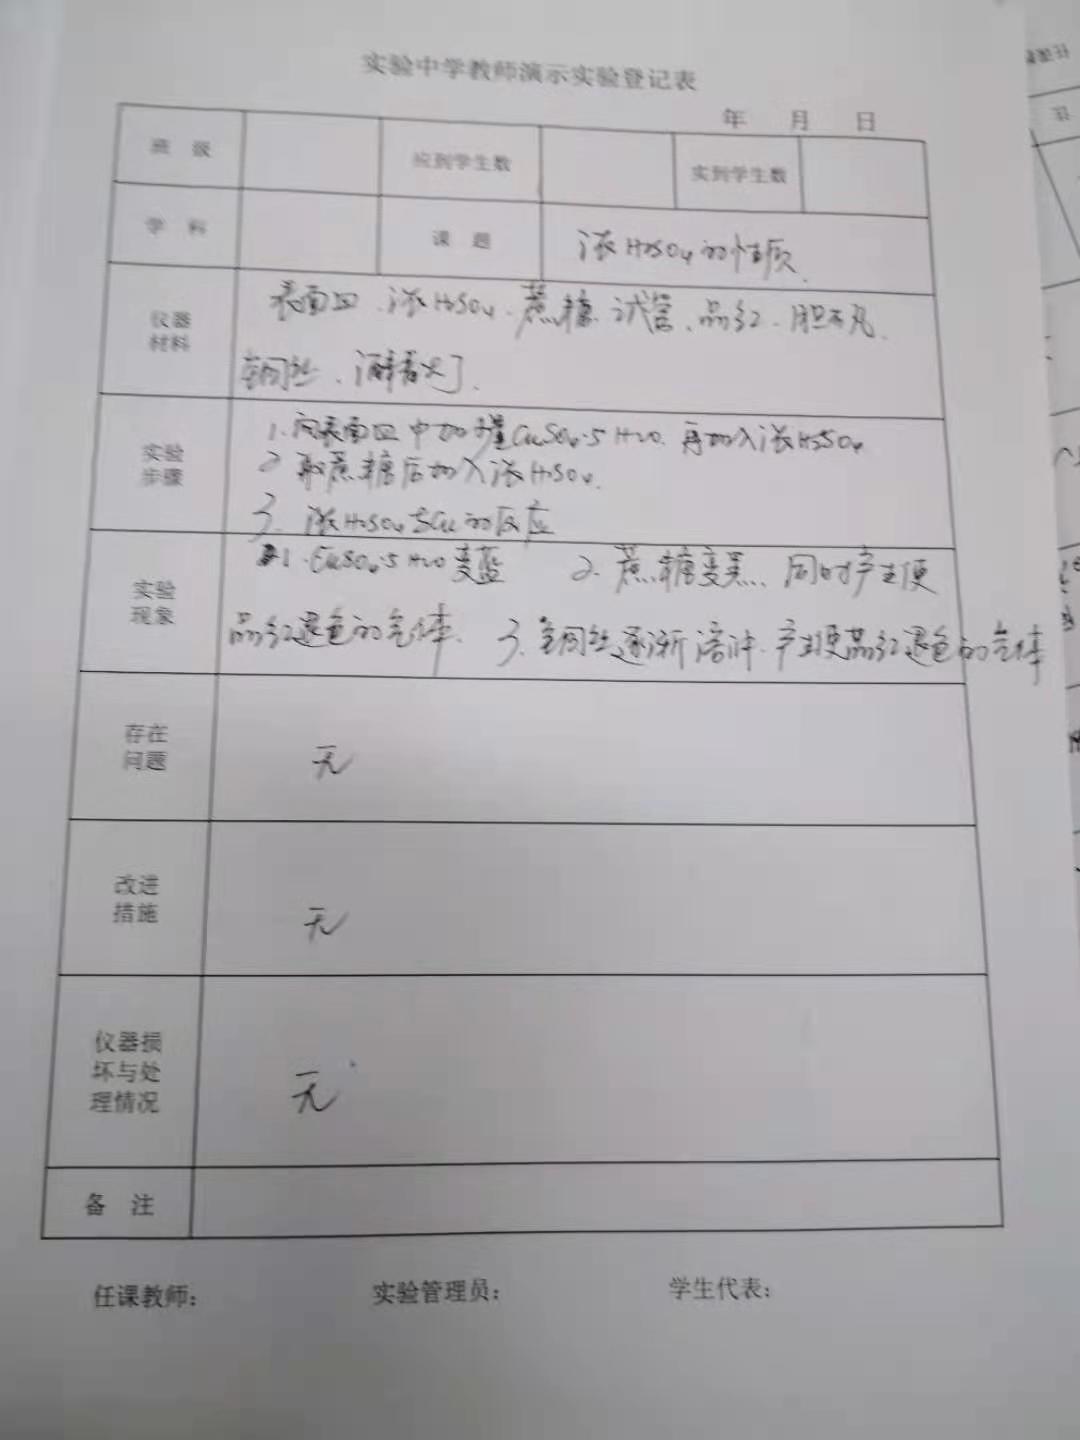 实验中学教师演示实验登记表
年 月 日
班 级 应到学生数 实到学生数
学 科 课 题 浓H2SO4的性质.
仪器材料 表面皿、浓H2SO4、蔗糖、试管、品红、胆矾、
铜丝、酒精灯.
实验步骤 1.向表面皿中加 CuSO4·5H2O.再加入浓H2SO4
2 取蔗糖后加入浓H2SO4.
3. 浓H2SO4与Cu的反应
实验现象 1.CuSO4·5H2O变蓝 2.蔗糖变黑、同时产生使
品红退色的气体. 3.铜丝逐渐溶 . 产生使品红退色的气体
存在问题 无
改进措施 无
仪器损坏与处理情况 无
备 注
任课教师: 实验管理员: 学生代表: